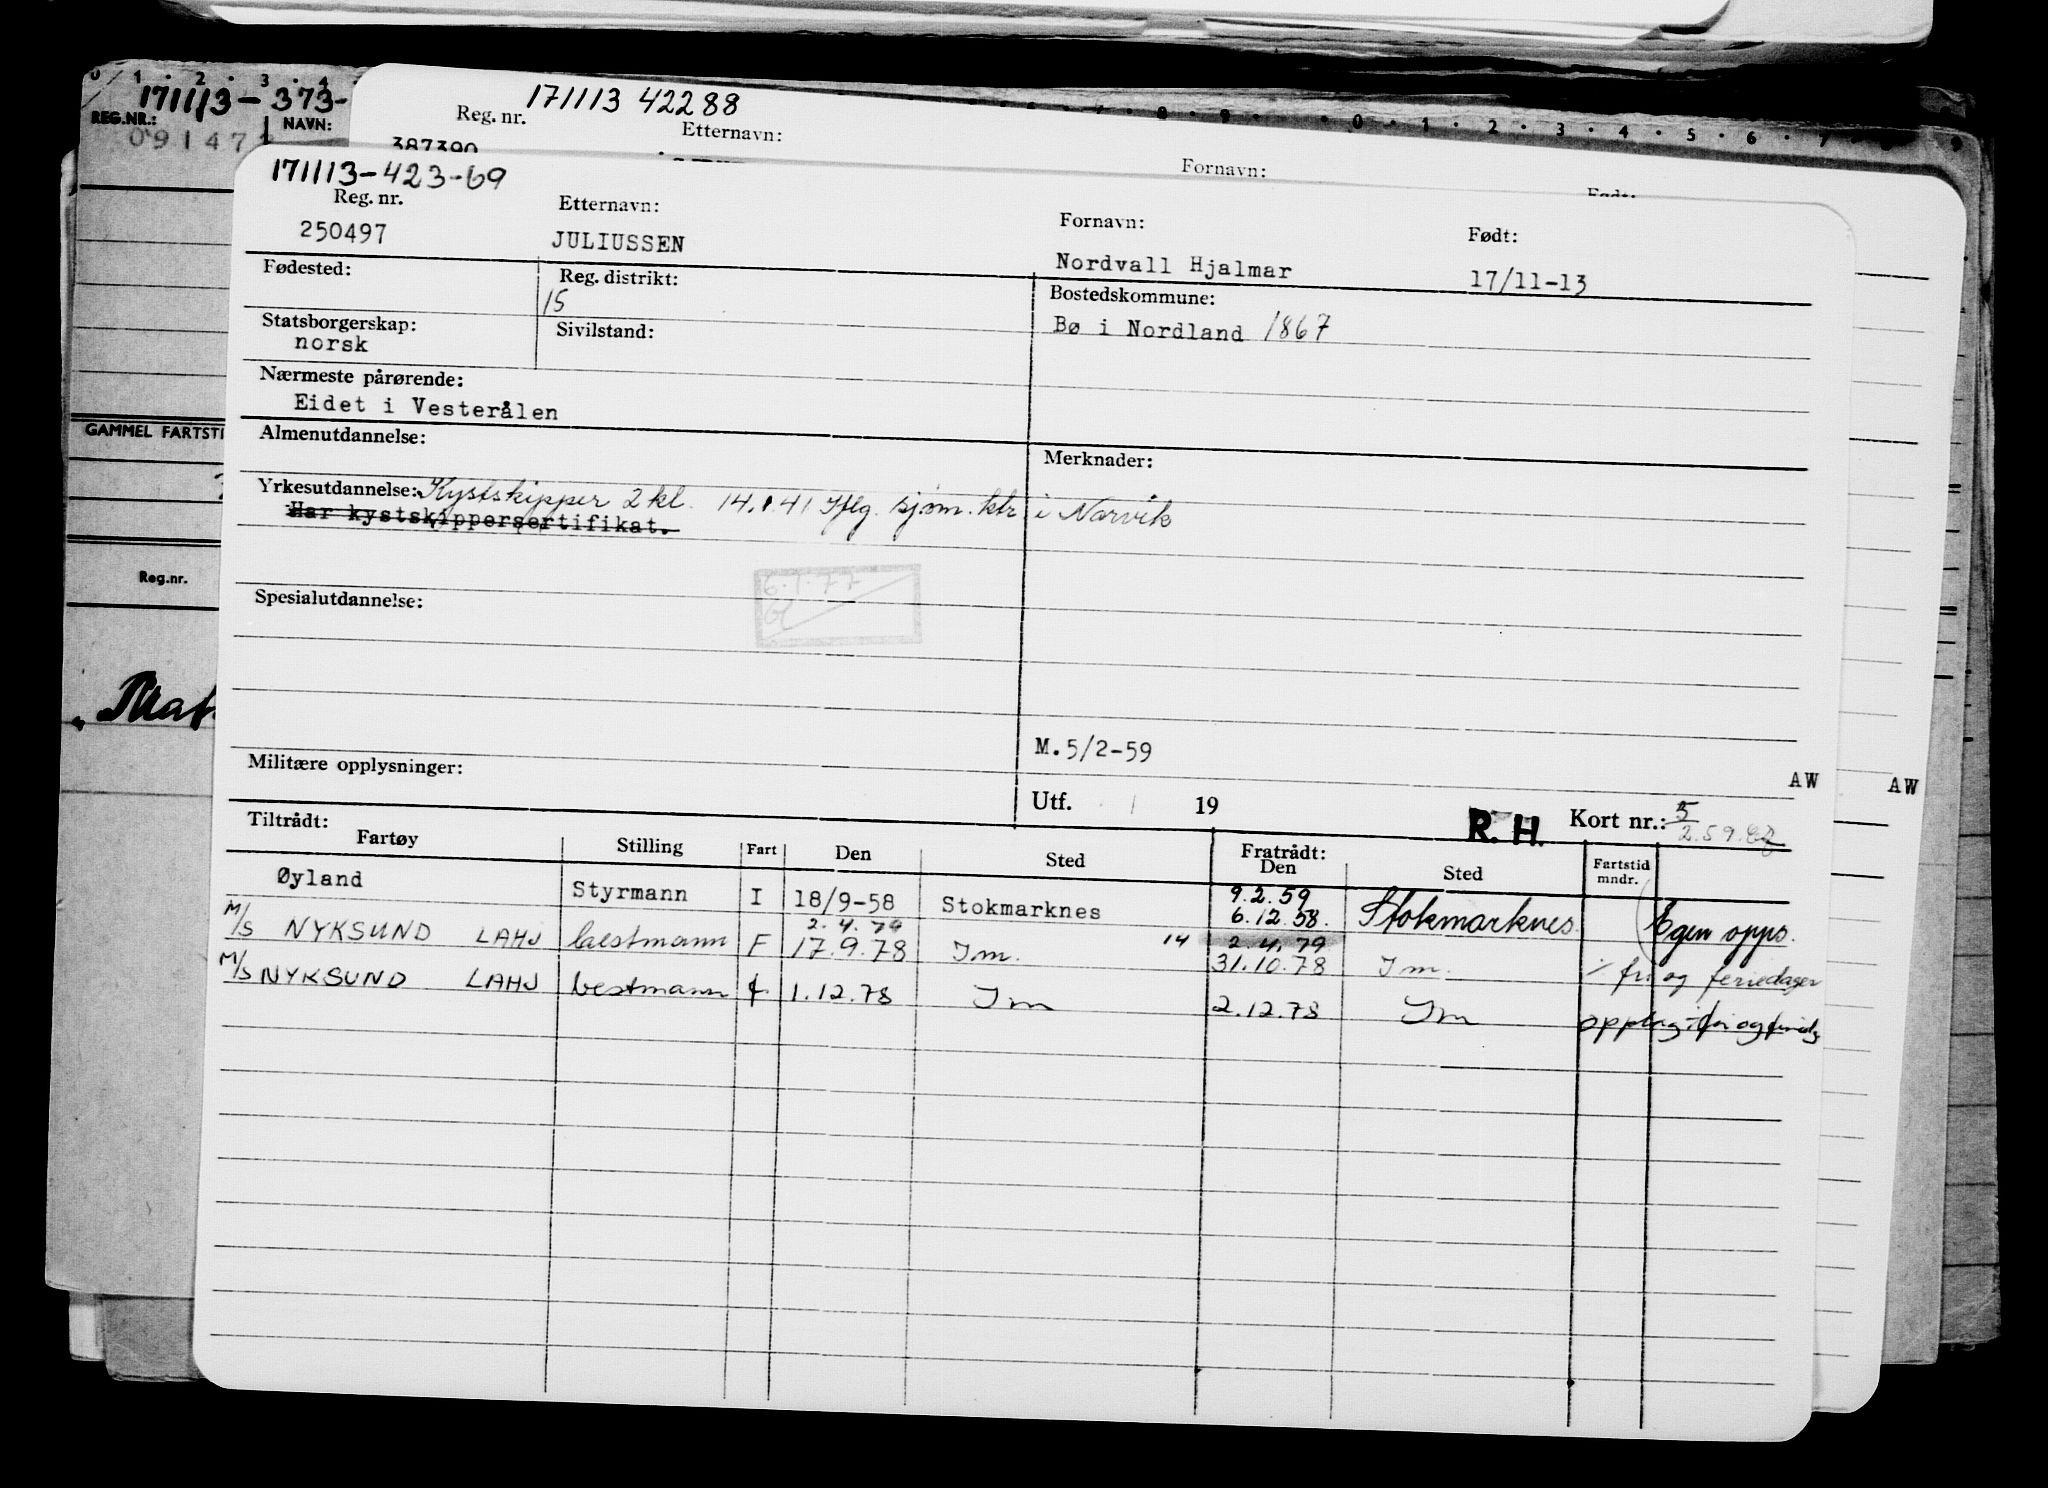 0 1 · 2 · 3 · 4
171113-373-
REG.NR.:
NAVN:
09147
171113 42288
Reg. nr.
Etternavn:
Fornavn:
387390
7 · 8 · 9 · 0 · 1 · 2 · 3 · 4 · 5 · 6 · 7 · 8 9
171113-423-69
Reg. nr.
Etternavn:
Fornavn:
Født:
250497
JULIUSSEN
Nordvall Hjalmar
17/11-13
Fødested:
Reg. distrikt:
15
Bostedskommune:
Bø i Nordland 1867
Statsborgerskap:
norsk
Sivilstand:
Nærmeste pårørende:
Eidet i Vesterålen
GAMMEL FARTSTI
Almenutdannelse:
Merknader:
Yrkesutdannelse: Kystskipper 2 kl. 14.1.41 Iflg. sjøm. ktr i Narvik
Har kystskippersertifikat.
Reg.nr.
6.1.77
Spesialutdannelse:
"Mat
M.5/2-59
Militære opplysninger:
AW AW
Utf. 19
R. H.
Kort nr.: 5
2.59.
Tiltrådt:
Fartøy Stilling Fart Den Sted Fratrådt: Den Sted Fartstid mndr.
Øyland Styrmann I 18/9-58 Stokmarknes 9.2.59
6.12.58. Stokmarknes. Egen opps.
2.4.79 2.4.79
M/S NYKSUND LAHJ bestmann F 17.9.78 Im. 14 31.10.78 Im. % fri og feriedager
M/S NYKSUND LAHJ bestmann F 1.12.78 Im 2.12.78 Im opplag